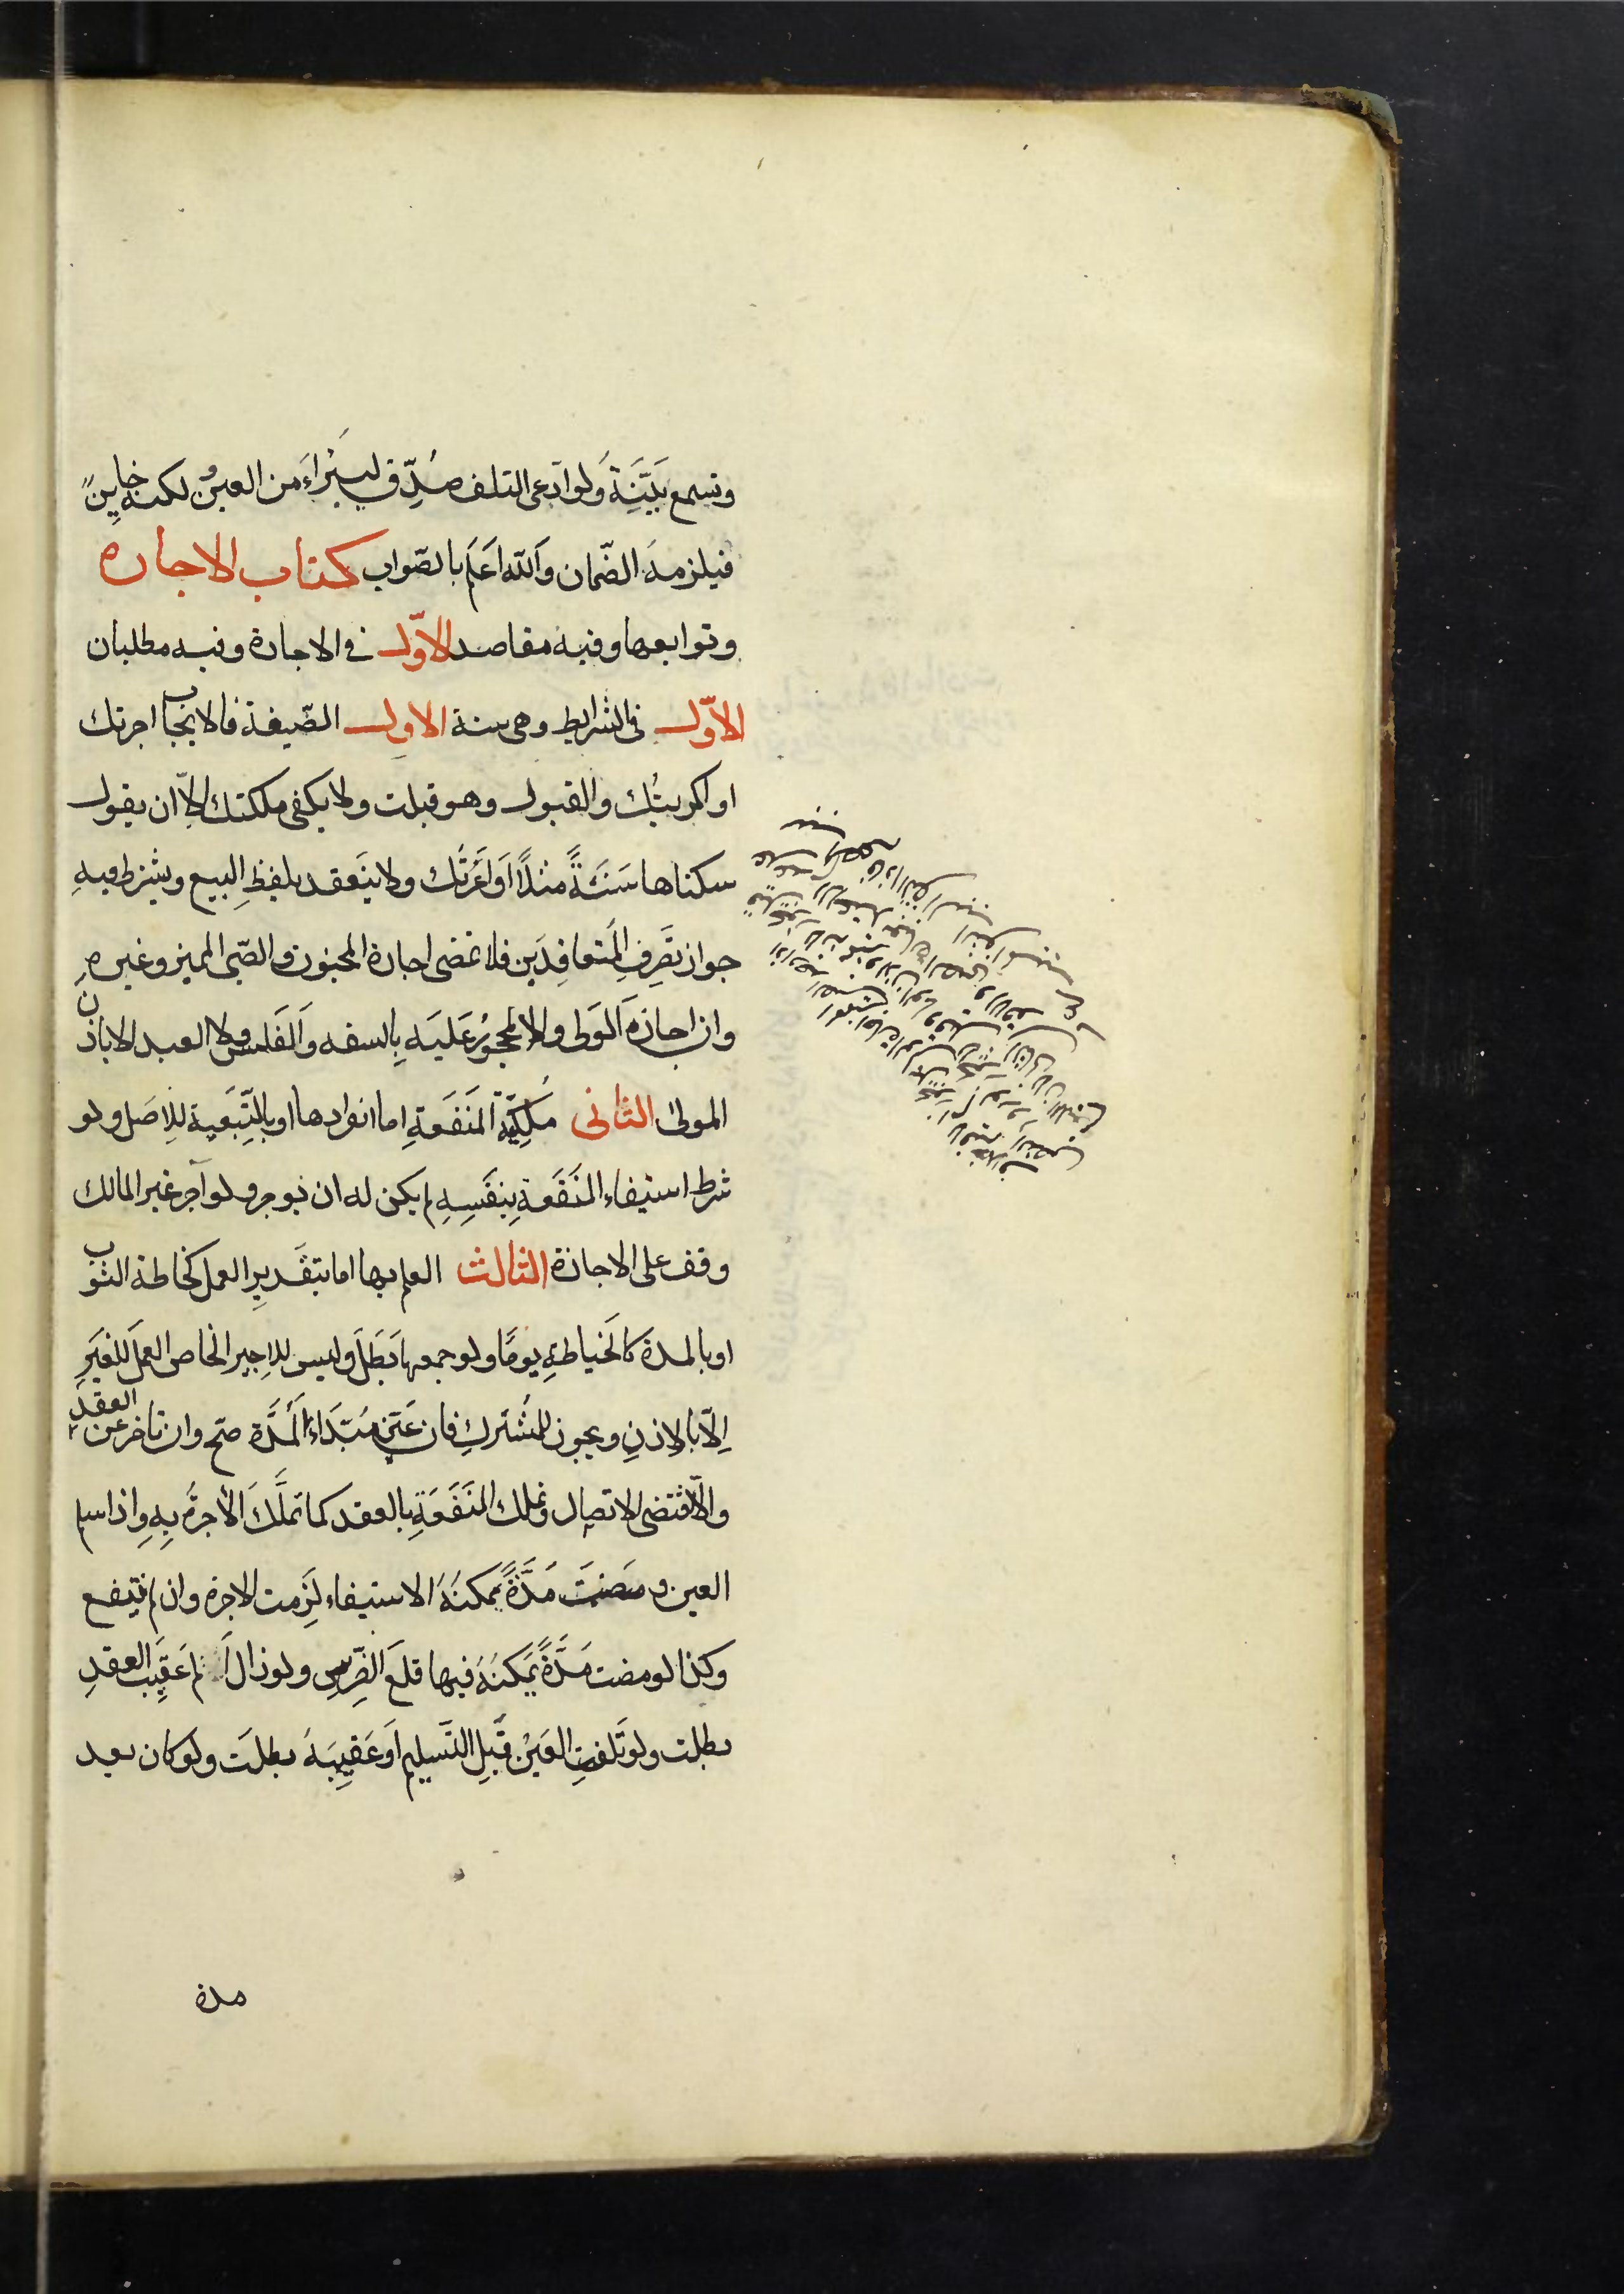 وتسمع بَيّنَِةُ وَلوادّعى التلف صُدِّق ليَبْراءَ من العينْ لكنه خاينٌ
فيلزمهُ الضّمان وَاللّه اَعَلم بالصّواب كتاب الاجاره
وتوابعها وفيه مقاصد الاوّل فى الاجارة وفيه مطلبان
الاوّل فى الشرايط وهى ستة الاول الصّيغة فالايجاب اجرتك
او اكريتُك والقبول وهو قبلت ولا يكفى ملكتك الّا ان يقول
سكناها سَنَةً مثلًا اَو اَعَرتُك ولا ينَعقد بلفظِ البيع ويشترط فيهِ
جواز تصَرفِ المُتعاقِدَين فلا تمضى اجارة المجنون والصّبى المميز وغيره
وان اجازهَ الَولى ولا المحجورُ عَليَهِ بِالسفه وَالفَلس ولا العبد الا باذن
المولىٰ الثانى مُلكِيّة المَنَفَعةِ اما انفرادها او بالتّبَعيةِ للِاصَل ولو
شرط استيفاء المنَفَعة بِنفَسِهِ لم يكن له ان يوجر ولو آجر غير المالك
وقف على الاجازة الثالث العلم بها اما بتقَديرِ العمل كخاطة الثوَب
او بالمدة كالَخياطةِ يومًا ولو جمعهما بَطَلَ وليس للِاجير الخاص العمَل للغيَرِ
اِلّا بالاِذنِ ويجوز للمُشتَركِ فان عَيّن مُبتَداءَ المُدَّة صّح وان تاخر عن العقدَ
والّا اقتضى الاتصال وتملك المنَفَعَةِ بالعقد كما تملَّكَ الاُجرةُ بِهِ وِاذا سلم
العين ومضَتَ مَدَّةً يمكنهَُ الاستيفاء لَزِمت الاجرة وان لم ينتفع
وكذا لو مضت مَدَّةً يَمكنهُ فيها قلعَ الضّرسِ ولو زال الَالم عَقيَب العقدِ
بطلت ولو تَلَفتِ العَيْن قَبلِ التَسليمِ اَو عَقيِبَهُ بطلَت ولو كان بعد
مدة